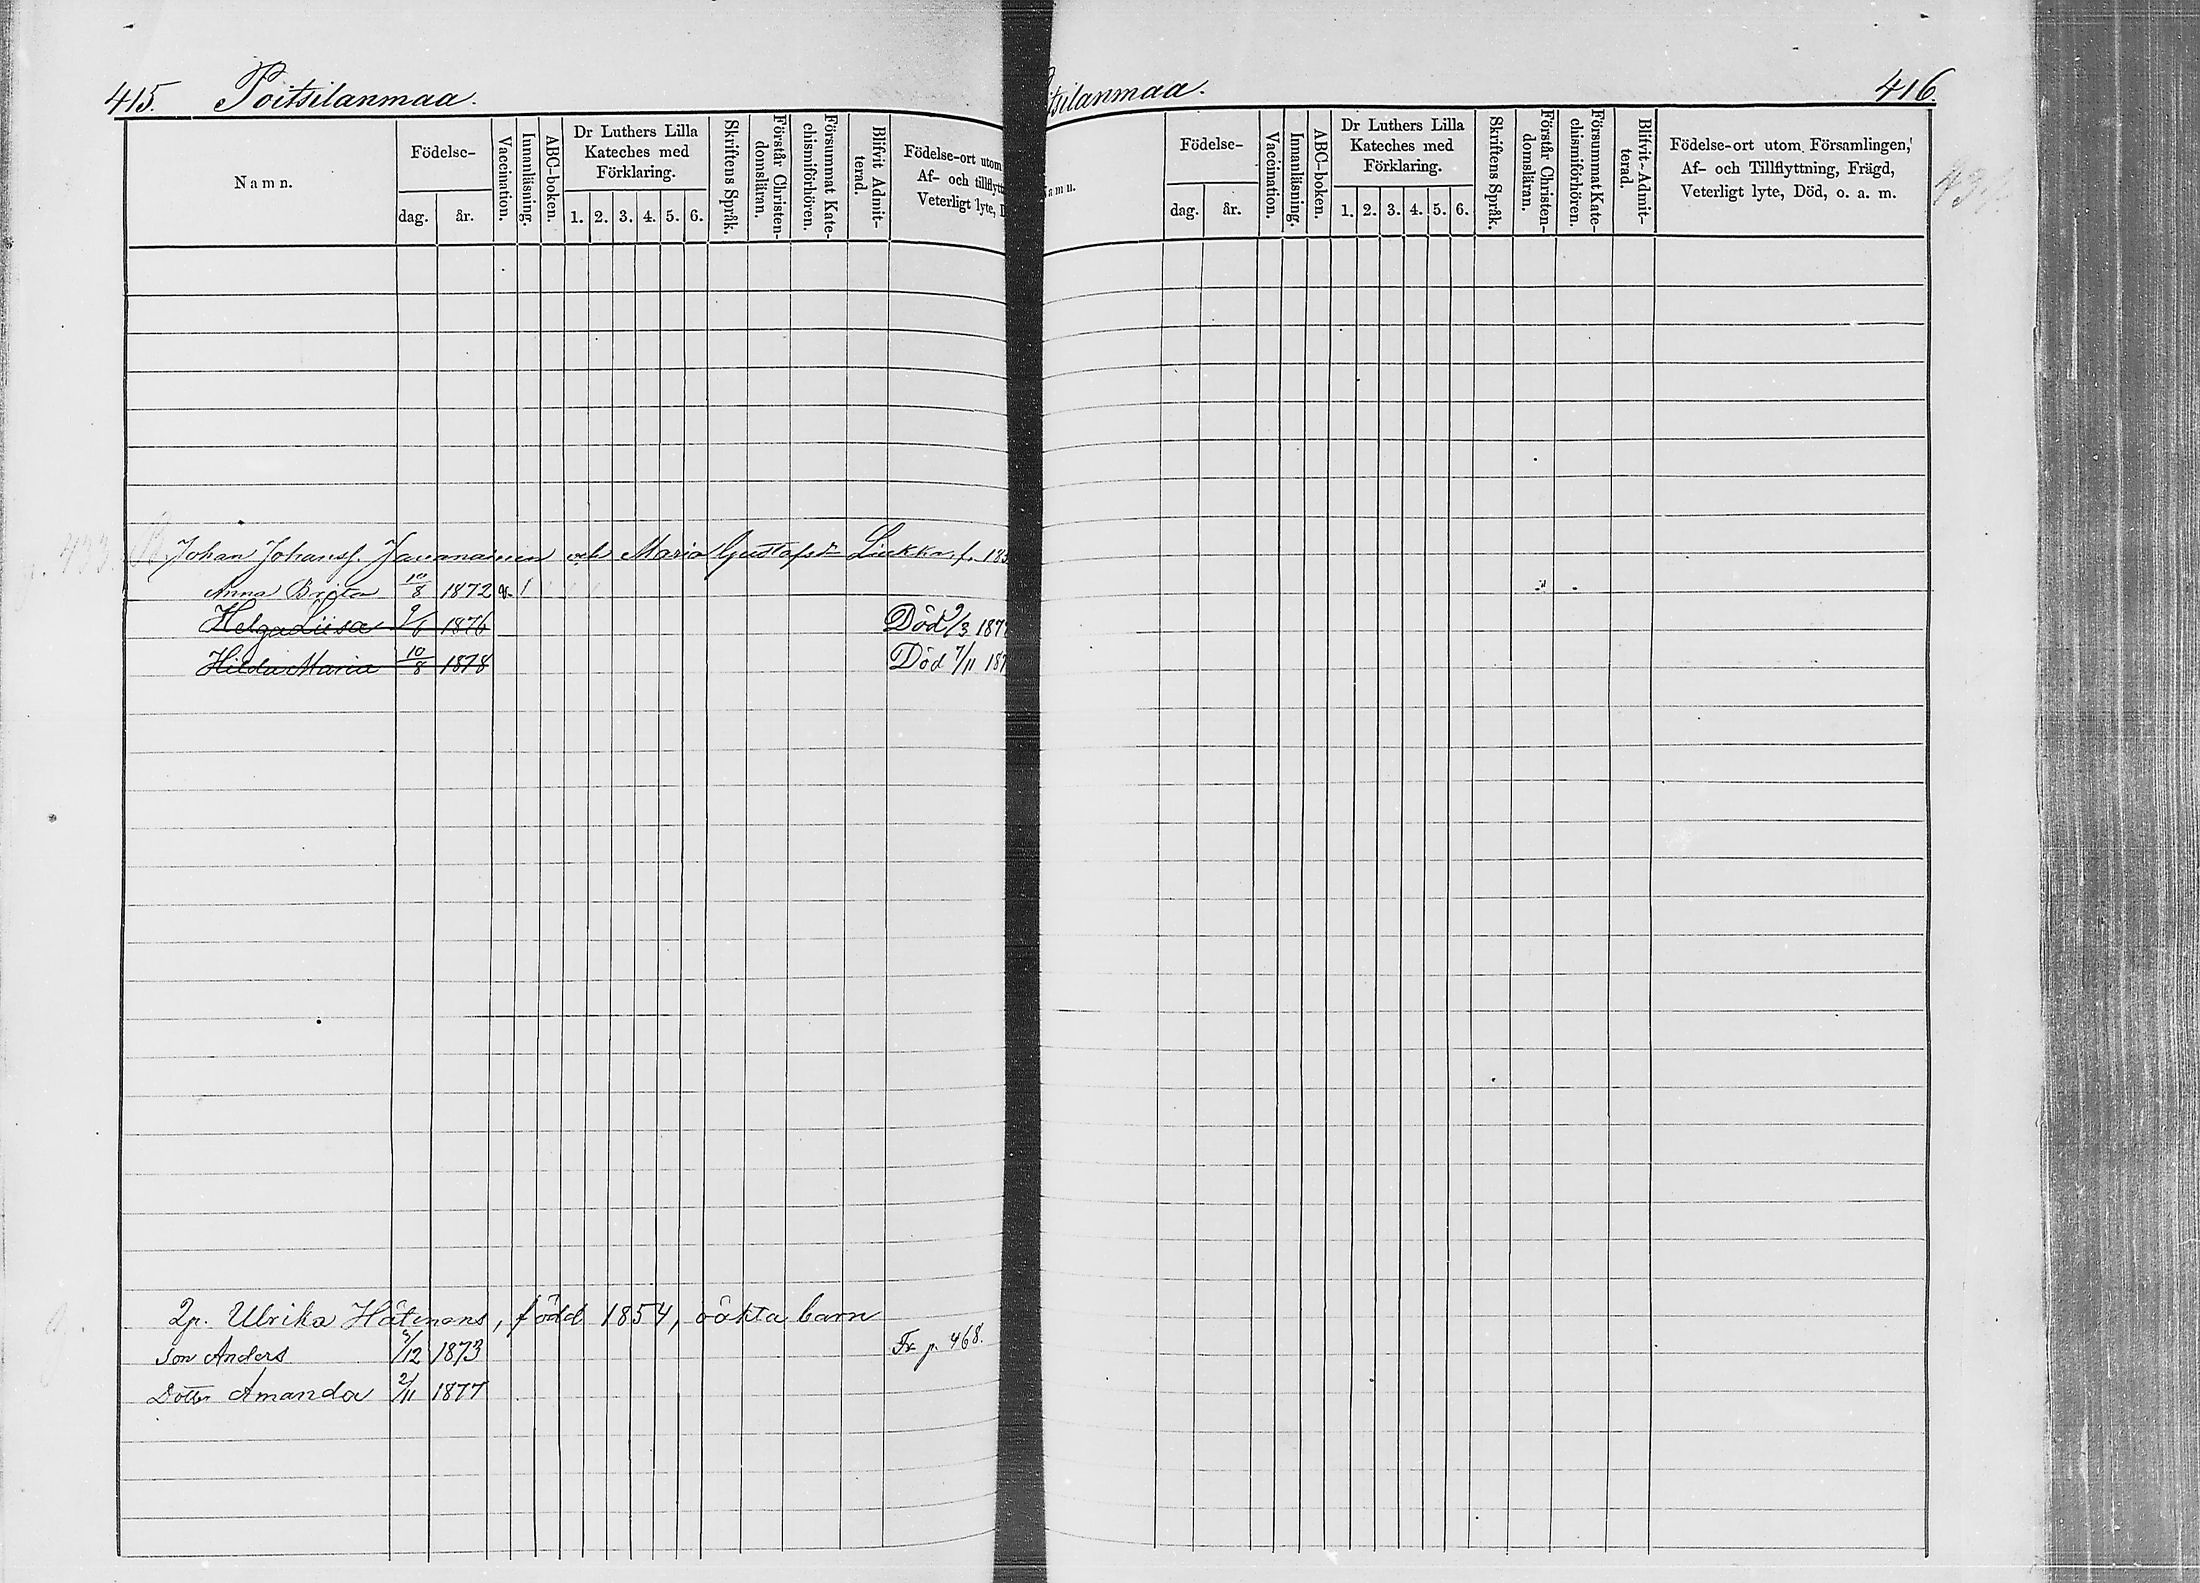 415. Poitsilanmaa.
Namn.
Födelse-
dag. år.
Vaccination.
Innanläsning.
ABC-boken.
Dr Luthers Lilla
Kateches med
Förklaring.
1. 2. 3. 4. 5. 6.
Skriftens Språk.
Förstår Christen-
domsläran.
Försummat Kate-
chismiförhören.
Blifvit Admit-
terad.
Födelse-ort utom
Af- och tillflytt
Veterligt lyte, D
Johan Johanss. och Maria Gustafsdr f. 183
Anna Brita 10/8 1872 v. /
Helga Liisa 9/6 1876 Död 9/3 187
Hilda Maria 10/8 1878 Död 7/11 187
Qp. Ulrika Hätinens, född 1854, oäkta barn
Son Anders /12 1873 Fr p. 468.
Dotter Amanda 2/11 1877
itsilanmaa. 416.
amn.
Födelse-
dag. år.
Vaccination.
Innanläsning.
ABC-boken.
Dr Luthers Lilla
Kateches med
Förklaring.
1. 2. 3. 4. 5. 6.
Skriftens Språk.
Förstår Christen-
domsläran.
Försummat Kate-
chismiförhören.
Blifvit Admit-
terad.
Födelse-ort utom Församlingen,
Af- och Tillflyttning, Frägd,
Veterligt lyte, Död, o. a. m.